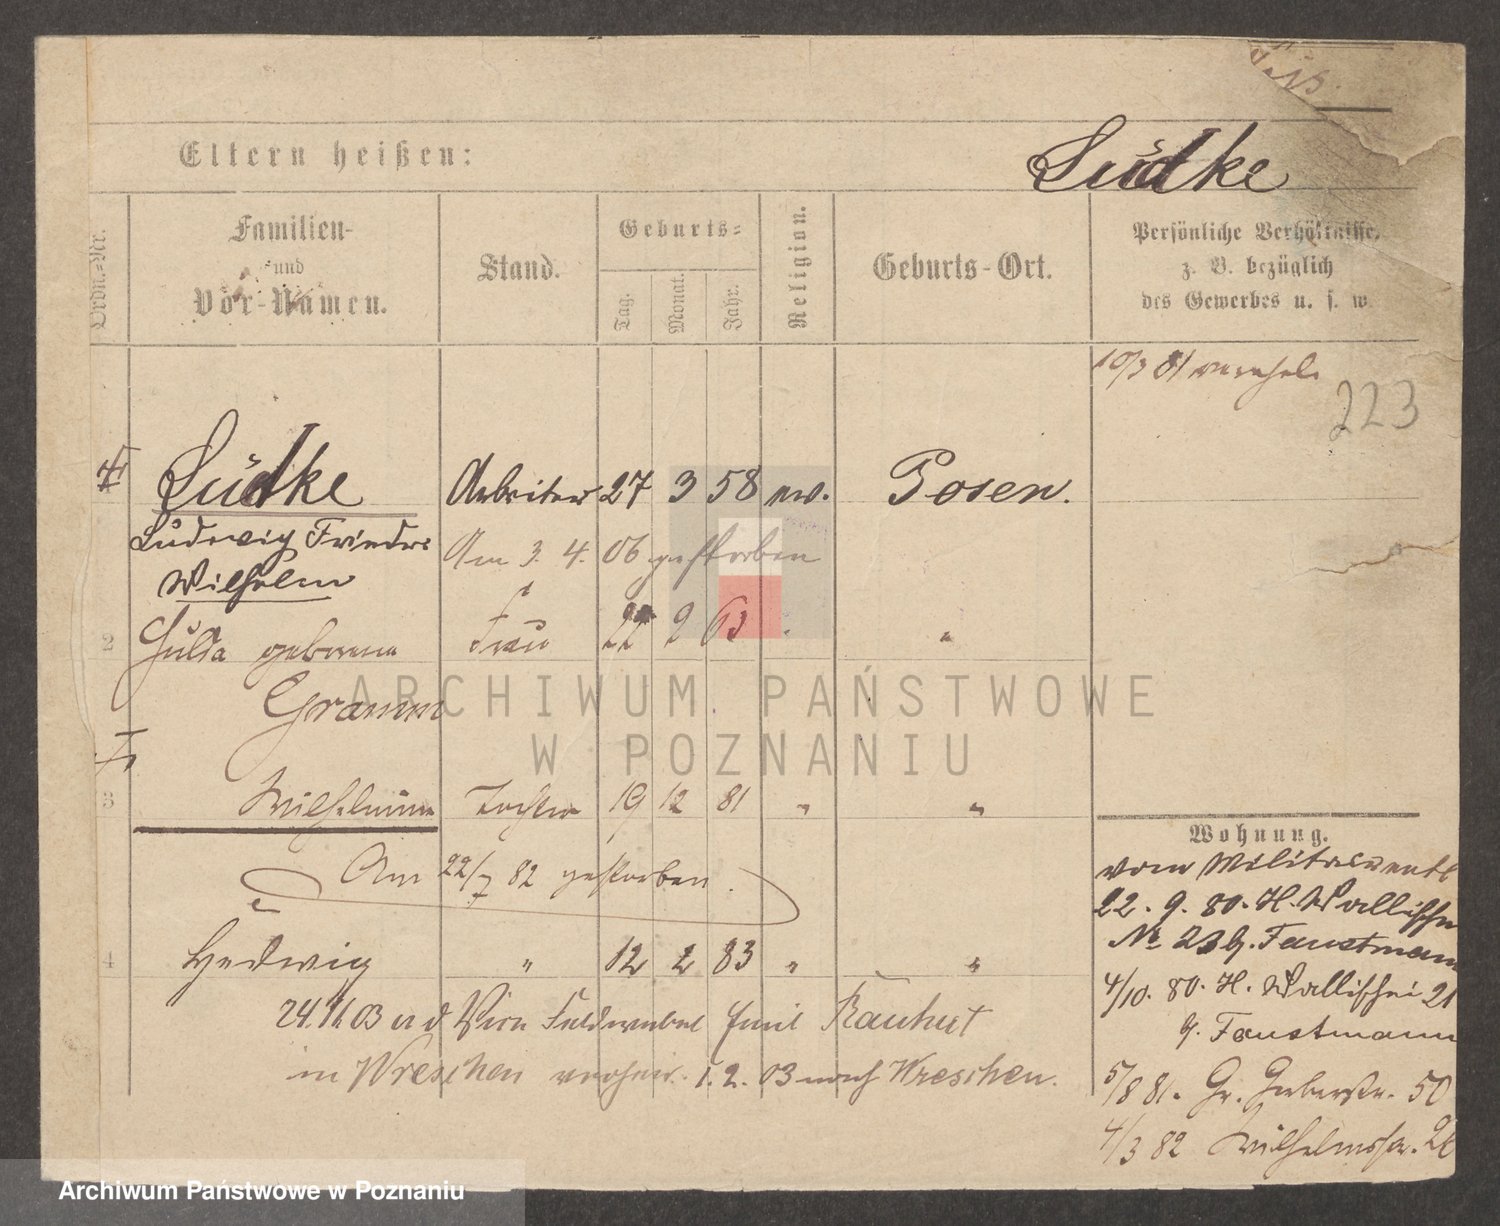 Eltern heißen:
Lüdke
Ordn.-Nr.
Familien-
und
Vor-Namen.
Stand.
Geburts-
Tag.
Monat.
Jahr.
Religion.
Geburts-Ort.
Persönliche Verhältnisse,
z. B. bezüglich
des Gewerbes u. s. w.
10/3 81 verehel.
223
Lüdke Arbeiter 27 3 58 ev. Posen.
Ludwig Friedr.
Wilhelm
Am 3. 4. 06 gestorben
2 Hulda geborene Frau 22 2 63 "
Gramm
3 Wilhelmine Tochter 19 12 81 " "
Am 22/7 82 gestorben.
4 Hedwig " 12 2 83 " "
24. 03 Feldwebel Emil Rauhut
in Wreschen verheir. 1. 2. 03 nach Wreschen.
Wohnung.
vom Militair
22. 9. 80. H. Wallischei
No 23 b. Faustmann
4/10. 80. H. Wallischei 21
b. Faustmann
5/8 81. Gr. Gerberstr. 50
4/3 82 Wilhelmstr.
ARCHIWUM PAŃSTWOWE
W POZNANIU
Archiwum Państwowe w Poznaniu